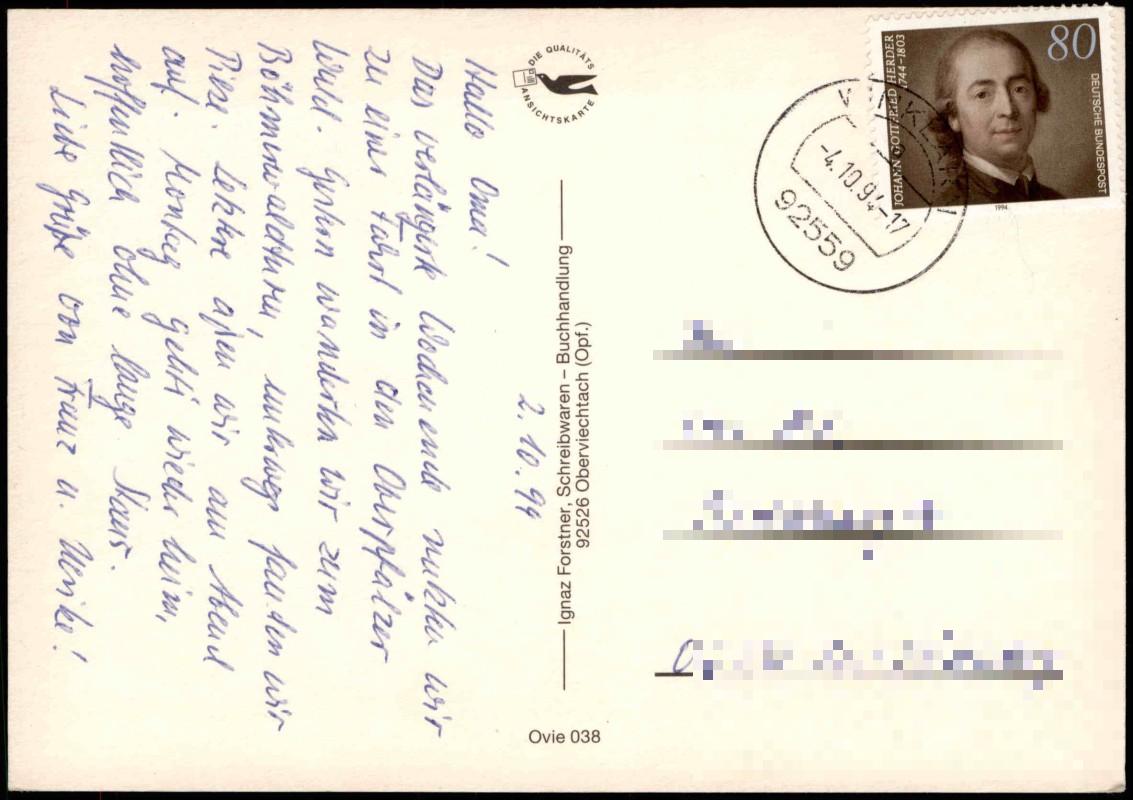 Hallo Oma!
Das verlängerte Wochenende nutzen wir
zu einer Fahrt in den Oberpfälzer
Wald. Gestern wanderten wir zum
Böhmerwaldturm, unterwegs fanden wir
Pilze. Letztere aßen wir am Abend
auf. Montag geht's wieder heim,
hoffentlich ohne lange Staus.
Liebe Grüße von Franz u. Ulrike!
2.10.94
DIE QUALITÄTS
ANSICHTSKARTE
Ignaz Forstner, Schreibwaren – Buchhandlung
92526 Oberviechtach (Opf.)
Ovie 038
80
DEUTSCHE BUNDESPOST
JOHANN GOTTFRIED HERDER
1744-1803
1994
-4.10.94-17
92559